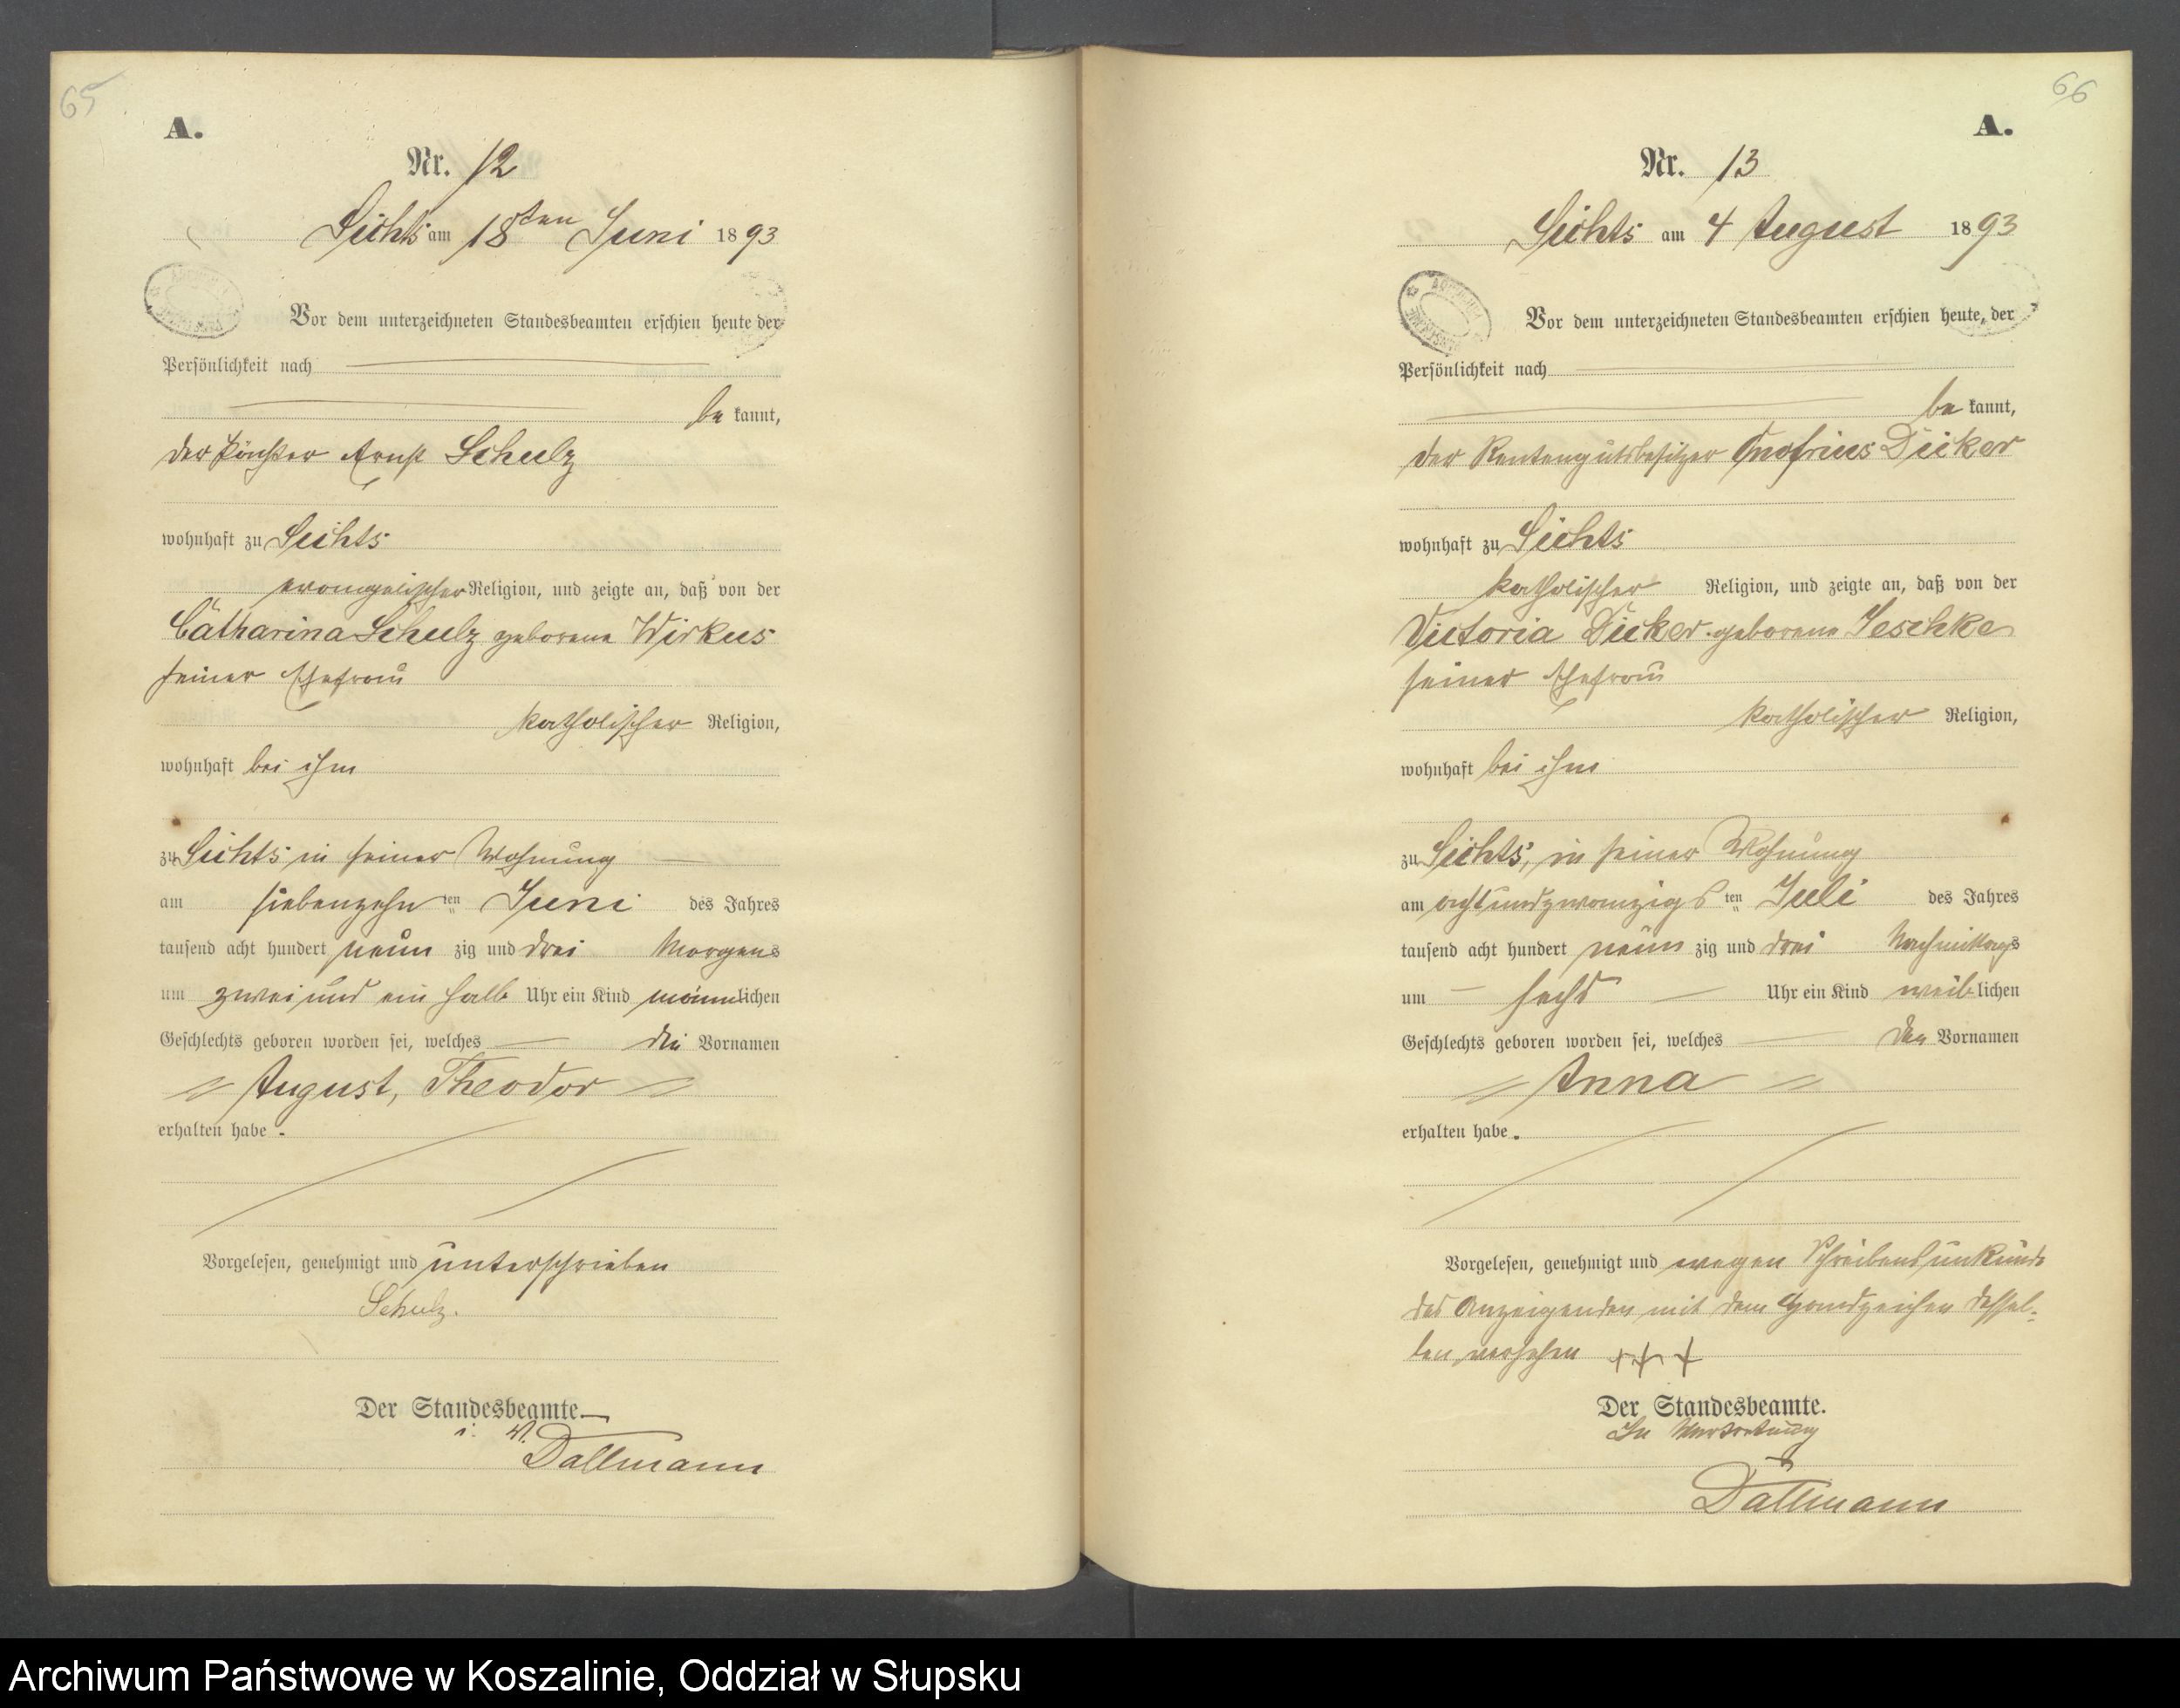 65
A.
Nr. 12
Lichts am 18ten Juni 1893
Vor dem unterzeichneten Standesbeamten erschien heute, der
Persönlichkeit nach
be kannt,
der Pächter Ernst Schulz
wohnhaft zu
evangelischer Religion, und zeigte an, daß von der
Catharina Schulz geborene Wirkus
seiner Ehefrau
katholischer Religion,
wohnhaft bei ihm
zu in seiner Wohnung
am siebenzehnten Juni des Jahres
tausend acht hundert neun zig und drei Morgens
um zwei und ein halb Uhr ein Kind männlichen
Geschlechts geboren worden sei, welches die Vornamen
August, Theodor
erhalten habe.
Vorgelesen, genehmigt und unterschrieben
Schulz.
Der Standesbeamte
i. V.
Dallmann
66
A.
Nr. 13
am 4 August 1893
Vor dem unterzeichneten Standesbeamten erschien heute, der
Persönlichkeit nach
be kannt,
der Rentengutsbesitzer Onofrius Dicker
wohnhaft zu
katholischer Religion, und zeigte an, daß von der
Victoria Dicker geborene Jeschke
seiner Ehefrau
katholischer Religion,
wohnhaft bei ihm
zu in seiner Wohnung
am achtundzwanzigsten Juli des Jahres
tausend acht hundert neun zig und drei Nachmittags
um sechs Uhr ein Kind weiblichen
Geschlechts geboren worden sei, welches den Vornamen
Anna
erhalten habe.
Vorgelesen, genehmigt und wegen Schreibensunkunde
des Anzeigenden mit dem Handzeichen dessel-
ben versehen +++
Der Standesbeamte.
In Vertretung
Dallmann
Archiwum Państwowe w Koszalinie, Oddział w Słupsku